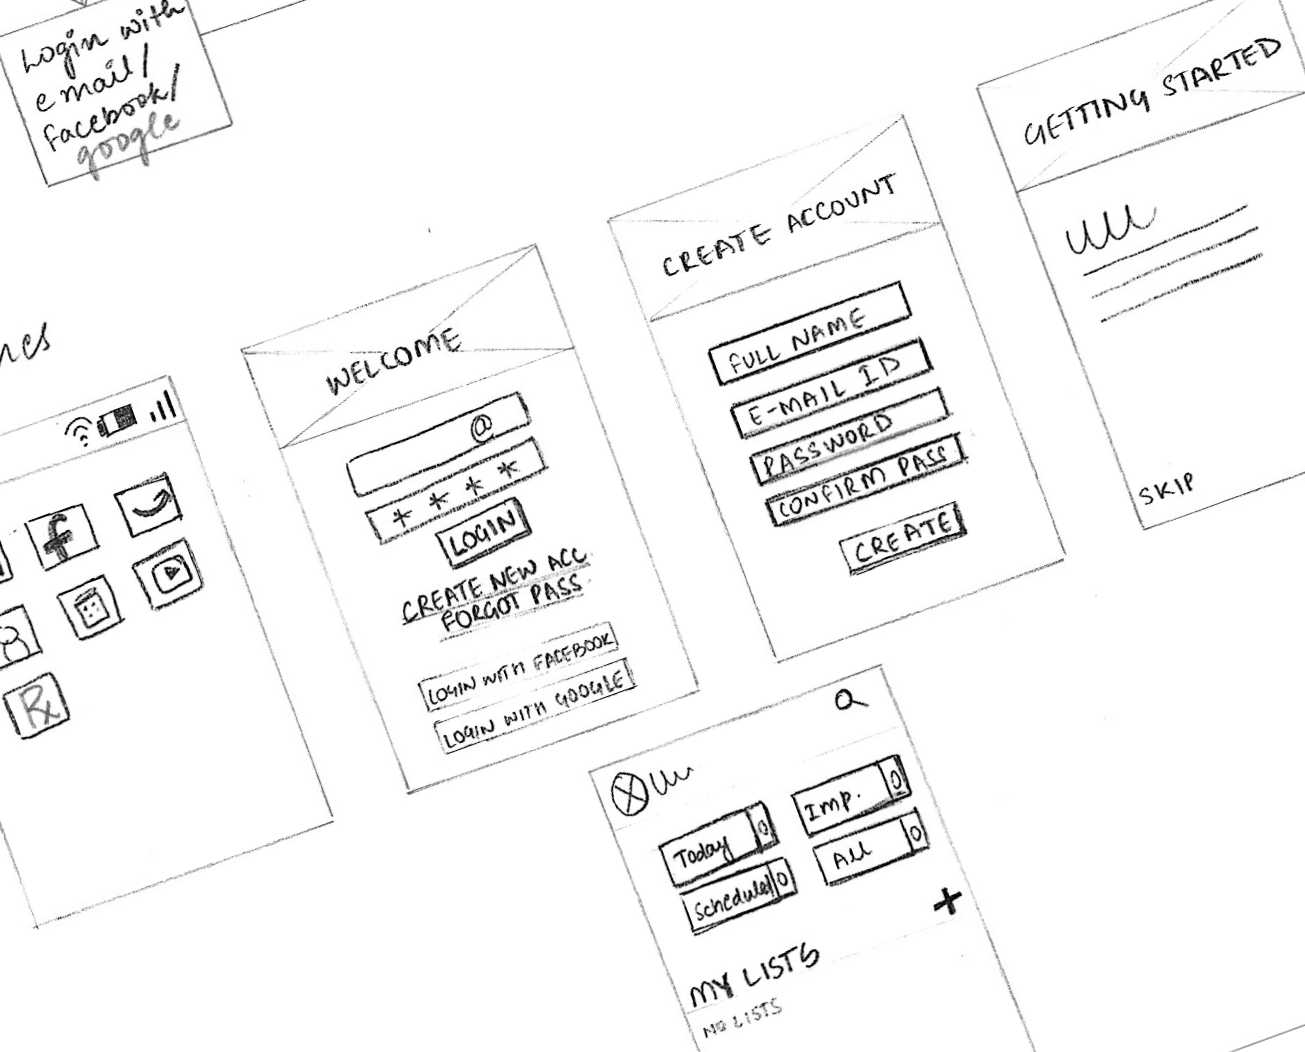 Login with
email/
facebook/
google
WELCOME
@
* * * *
LOGIN
CREATE NEW ACC
FORGOT PASS
LOGIN WITH FACEBOOK
LOGIN WITH GOOGLE
CREATE ACCOUNT
FULL NAME
E-MAIL ID
PASSWORD
CONFIRM PASS
CREATE
GETTING STARTED
SKIP
f
Rx
Today 0
Imp. 0
Scheduled 0
All 0
+
MY LISTS
NO LISTS